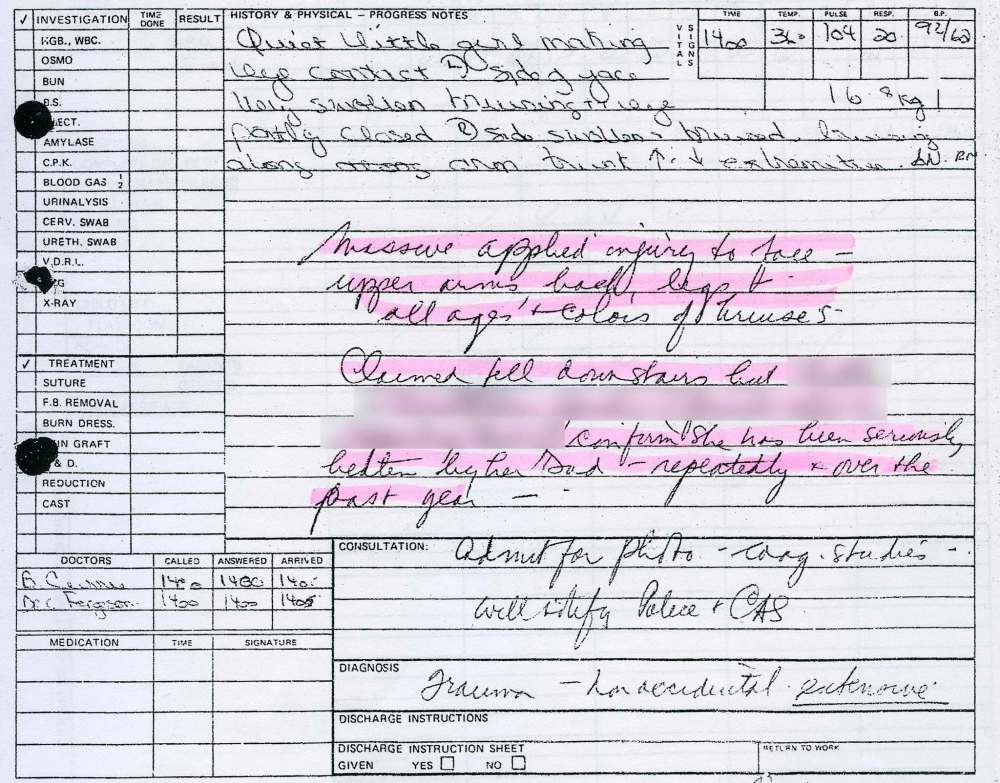 ✓ INVESTIGATION TIME DONE RESULT
HISTORY & PHYSICAL – PROGRESS NOTES
VITAL SIGNS TIME TEMP. PULSE RESP. B.P.
1400 104 20 92/62
16.8kg
HGB., WBC.
OSMO
BUN
B.S.
ECT.
AMYLASE
C.P.K.
BLOOD GAS 1/2
URINALYSIS
CERV. SWAB
URETH. SWAB
V.D.R.L.
X-RAY
Quiet little girl making
eye contact L side of face
swollen bruising R eye
partly closed R side swollen bruised bruising
along arm trunk ↑ ↓ extremities RN
Massive applied injury to face –
upper arms back, legs +
all ages + colors of bruises –
Claimed fell down stairs but
confirm she has been seriously
beaten by her Dad – repeatedly + over the
past year –
✓ TREATMENT
SUTURE
F.B. REMOVAL
BURN DRESS.
GRAFT
& D.
REDUCTION
CAST
DOCTORS CALLED ANSWERED ARRIVED
1400 1400
Dr. C. Ferguson 1400 1400 1405
MEDICATION TIME SIGNATURE
CONSULTATION: Admit for photo. – coag. studies –
will notify Police + CAS
DIAGNOSIS
Trauma – non accidental. extensive
DISCHARGE INSTRUCTIONS
DISCHARGE INSTRUCTION SHEET
GIVEN YES NO
RETURN TO WORK